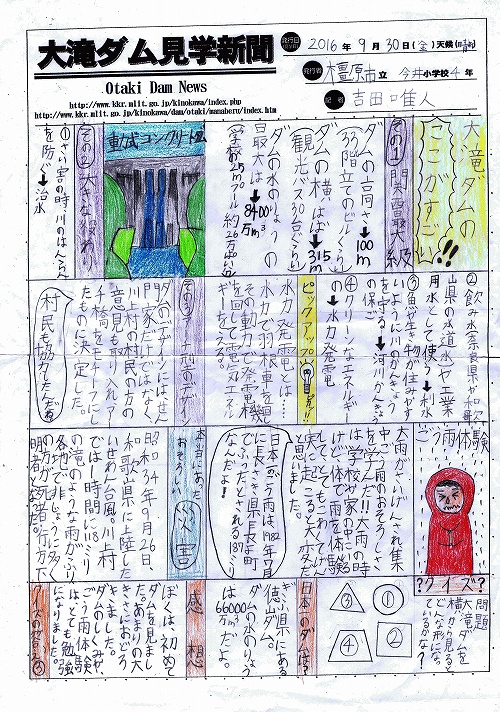 大滝ダム見学新聞
Otaki Dam News
http://www.kkr.mlit.go.jp/kinokawa/index.php
http://www.kkr.mlit.go.jp/kinokawa/dam/otaki/manaberu/index.htm
発行日
2016年9月30日(金)天候(晴)
発行者
橿原市立 今井小学校4年
記者
吉田唯人
大竜ダムの
ここがすごい!!
その1 関西最大級
ダムの高さ→100m
(33階立てのビルぐらい)
ダムの横はば→315m
(観光バス30台ぐらい)
ダムの水のりょうの
最大は→8400万m³
(学校の25mプール約26万ばい分)
重力式コンクリート
その2 大きな役わり
①さい害の時川のはんらん
を防ぐ→治水
②飲み水奈良県や和歌
山県の水道水や工業
用水として使う→利水
③魚や生物が住みやす
いように川のかんきょう
を守る→河川かんきょう
の保ご
④クリーンなエネルギー
の→水力発電
ピックアップ
水力発電とは……
水力で羽根車を回し
その動力で発電機
を回して電気エネル
ギーをえる。
その3 デザイン
ダムのデザインにはせん
門家だけではなく、
川上村の村民の方の
意見も取り入れアー
チ橋をモチーフにし
たものに決定した。
村民も協力したんだね
ごう雨体験
大雨がさいげんされ集
中ごう雨のおそろしさ
を学んだ!!大雨の時
は学校や家の中にいる
けど、体で雨を体験
するととてもこわくてげん
実に起こると大変だ
と思いました。
日本のごう雨は1982年7月
に長さき県長よ町
でふったとされる187ミリ
なんだよ!
本当にあった
おそろしい
災害
昭和34年9月26日、
和歌山県に上陸した
いせわん台風。川上村
では一時間に118ミリ
の滝のような雨がふり
各地でひじょうに多く
の方が死者・行方不
明者となった。
?クイズ?
問題
大滝ダムを
横から見ると
どんな形になっ
ているかな?
① ② ③ ④
日本一のダムは?
ぎふ県にある
徳山ダム。
ダムの水のりょう
は66000万m³だよ。
感想
ぼくは、初めて
ダムを見まし
た。あまりの大
きさにおどろ
きました。
ダムのしくみや、
ごう雨体験
はとても勉強
になりました。
クイズの答え③